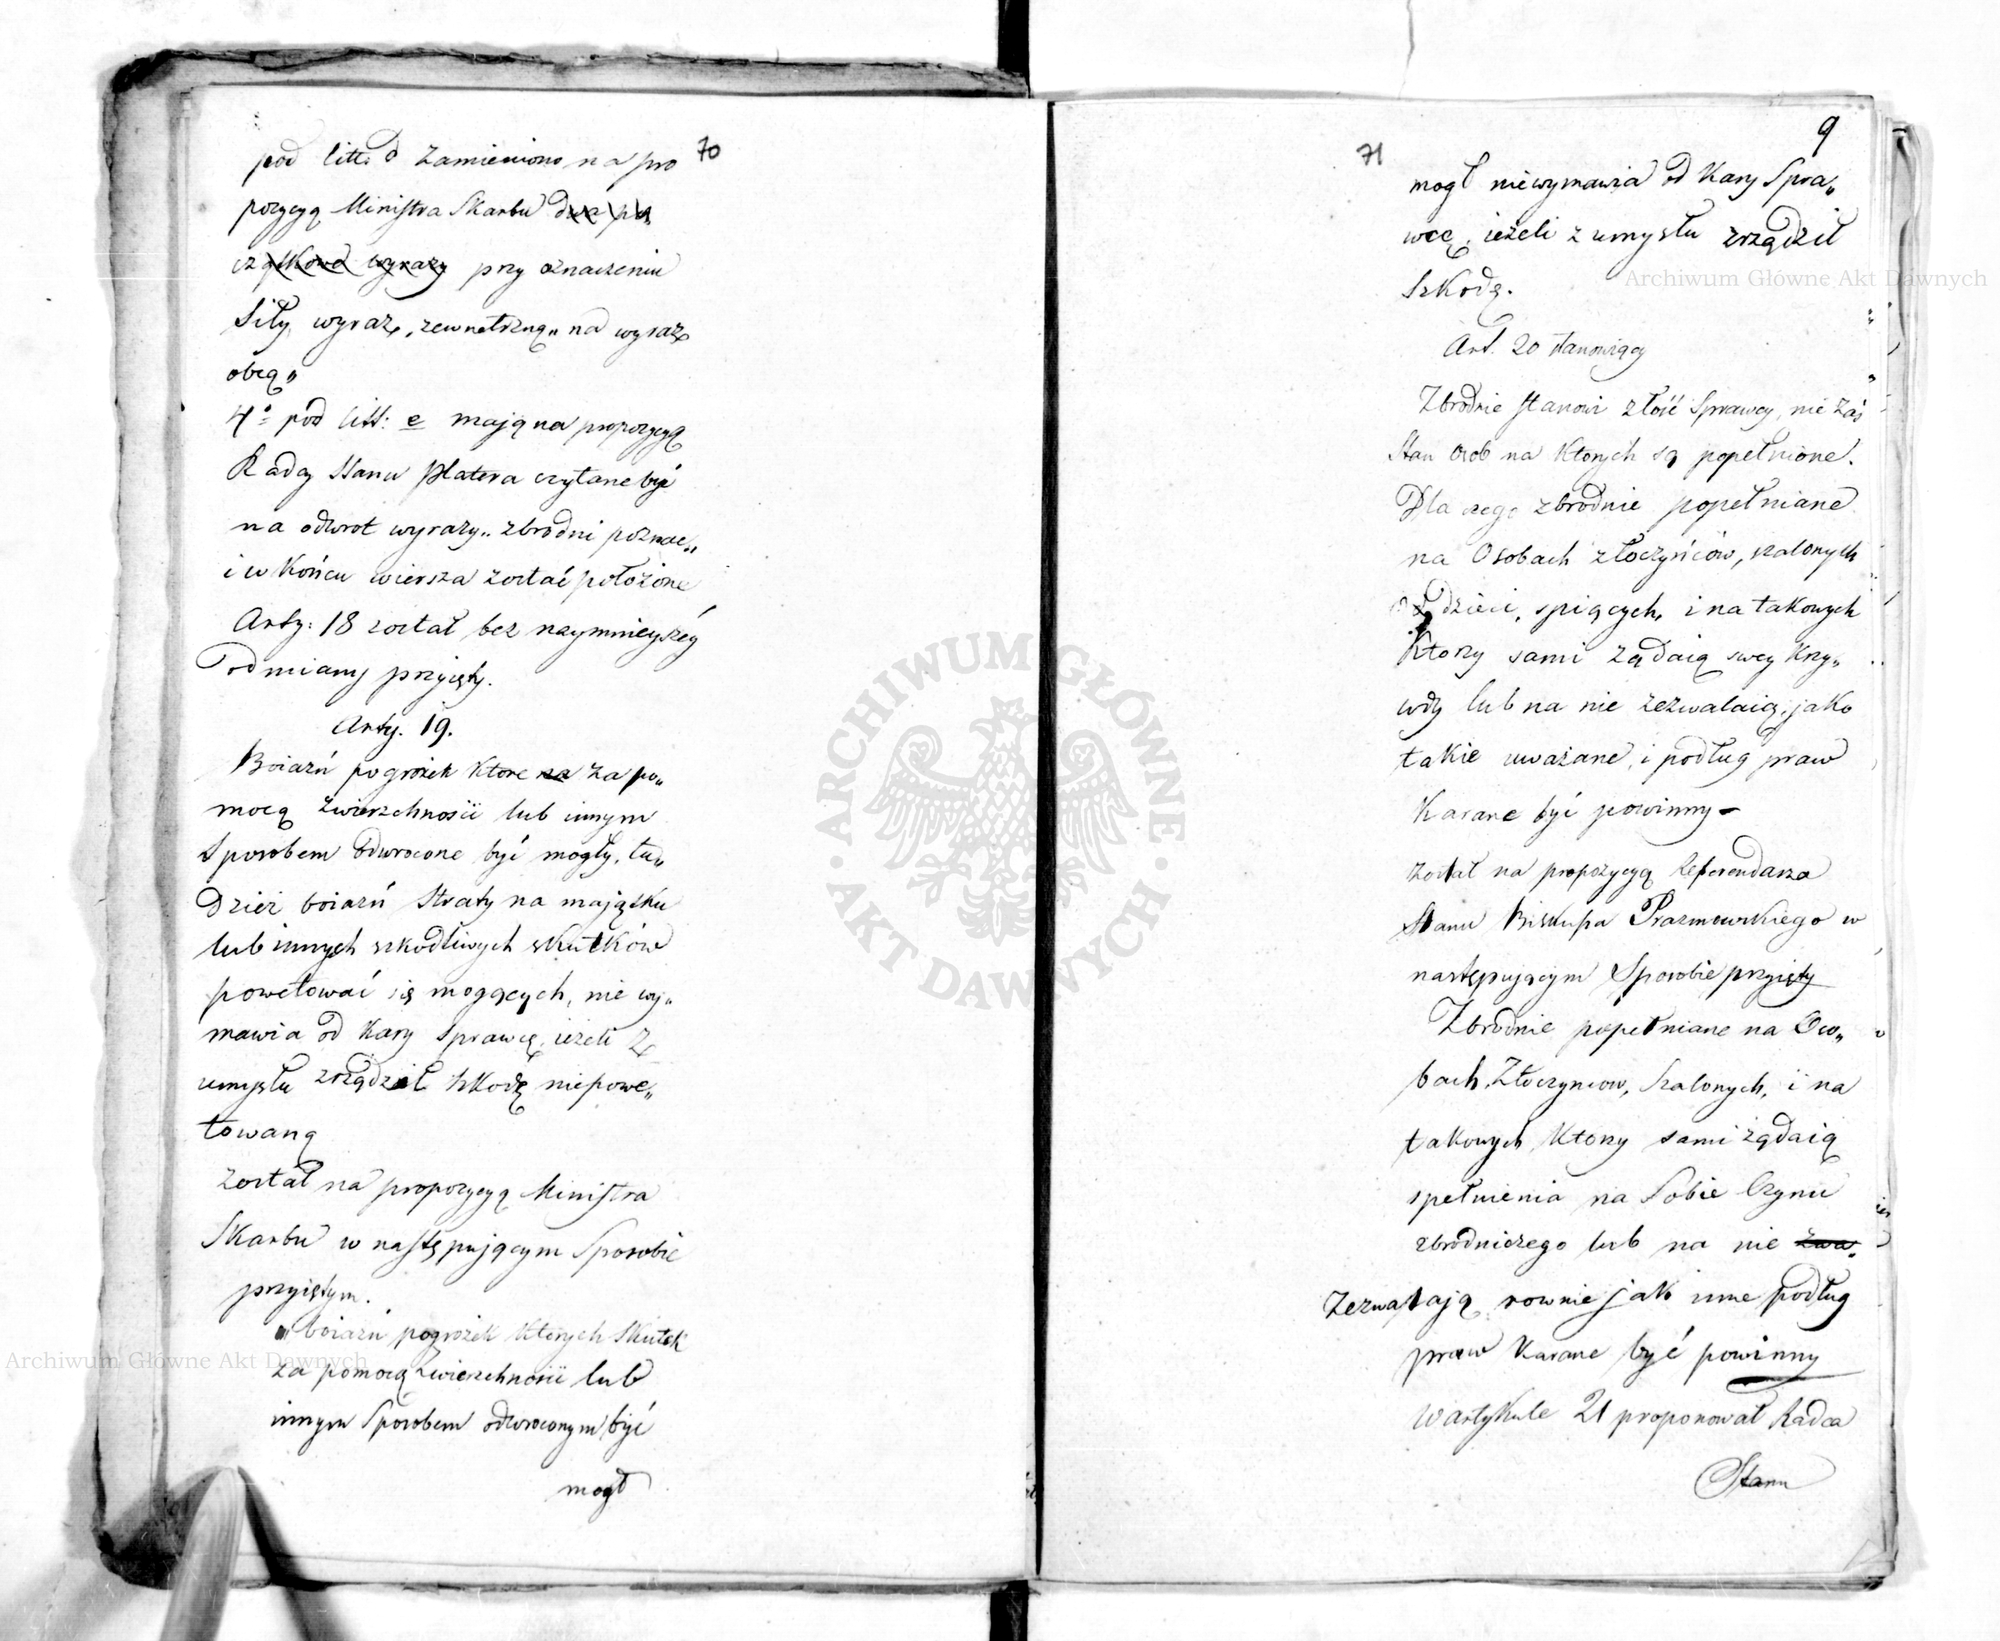 70
pod litt. d zamieniono na pro
pozycyą Ministra Skarbu dwa po
czątkowe wyrazy przy oznaczeniu
Siły, wyraz „zewnętrzną„ na wyraz
obcą„
4° pod litt: e mają na propozycyą
Radcy Stanu Platera czytane być
na odwrot wyrazy„ zbrodni poznać„
i w Końcu wiersza zostać położone
Arty: 18 został bez naymnieyszéy
odmiany przyięty.
Arty. 19.
Boiaźń pogrożek Ktore na za po„
mocą zwierzchności lub innym
Sposobem odwrocone być mogły, tu„
dzież boiaźń Straty na majątku
lub innych szkodliwych skutków
powetować się mogących, nie wy„
mawia od Kary Sprawcę, ieżeli z
umysłu zrządził szkodę niepowe„
towaną
został na propozycyą Ministra
Skarbu w następującym Sposobie
przyiętym.
„boiaźń pogrożek których Skutek
za pomocą zwierzchności lub
innym Sposobem odwroconym być
mogł
9
71
mogł niewymawia od Kary Spra„
wcę, ieżeli z umysłu zrządził
Szkodę.
Art. 20 stanowiący
Zbrodnie stanowi złość Sprawcy, nie zaś
Stan Osob na Ktorych są popełnione.
Dla czego zbrodnie popełniane
na Osobach złoczyńców, szalonych
dzieci, spiących, i na takowych
Ktorzy sami żądaią swey Krzy„
wdy lub na nie zezwalaią, jako
takie uważane, i podług praw
Karane być powinny –
został na propozycyą Referendarza
Stanu Biskupa Prazmowskiego w
następującym Sposobie przyięty
Zbrodnie popełniane na Oso„
bach Złoczyncow, Szalonych, i na
takowych Ktorzy sami żądaią
spełnienia na Sobie Czynu
zbrodniczego lub na nie zwa„
Zezwalają rownie jak inne podług
praw Karane być powinny
W artykule 21 proponował Radca
Stanu
Archiwum Główne Akt Dawnych
Archiwum Główne Akt Dawnych
ARCHIWUM GŁÓWNE · AKT DAWNYCH ·